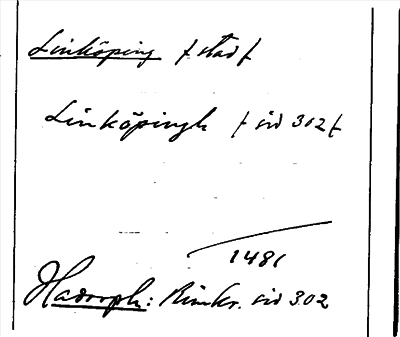 Linköping /stad/
Linköpingh / sid 302/
1481
Hadorph: Rimkr. sid 302